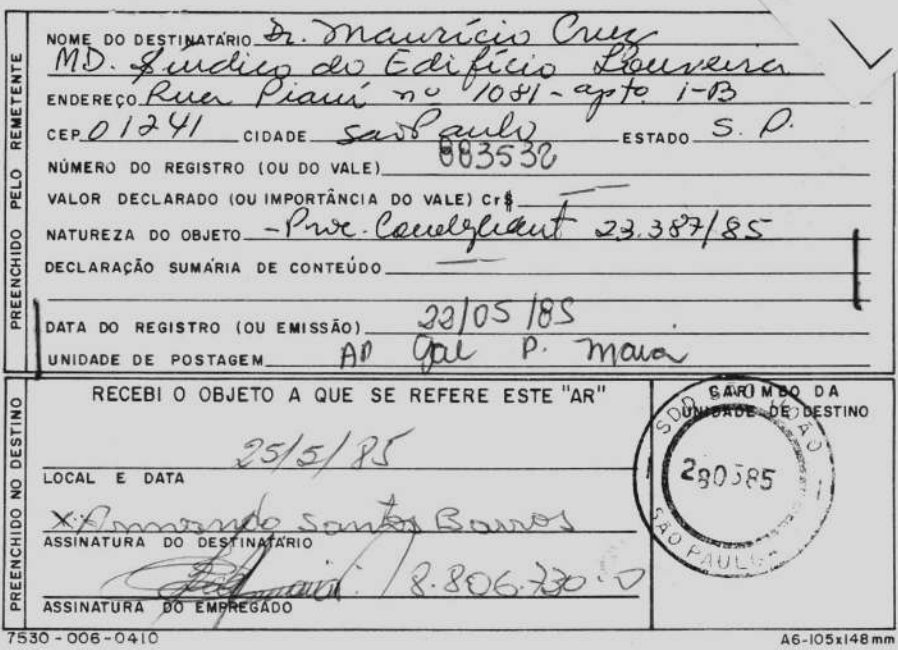 NOME DO DESTINATÁRIO Dr. Maurício Cruz
MD. Síndico do Edifício Louveira
ENDEREÇO Rua Piauí nº 1081 - apto. 1-B
CEP 01241 CIDADE São Paulo ESTADO S. P.
NÚMERO DO REGISTRO (OU DO VALE) 003532
VALOR DECLARADO (OU IMPORTÂNCIA DO VALE) Cr$ —
NATUREZA DO OBJETO - Proc. Condephaat 23.387/85
DECLARAÇÃO SUMÁRIA DE CONTEÚDO —
DATA DO REGISTRO (OU EMISSÃO) 22/05/85
UNIDADE DE POSTAGEM AP Gal P. Maia
PREENCHIDO PELO REMETENTE
RECEBI O OBJETO A QUE SE REFERE ESTE "AR"
25/5/85
LOCAL E DATA
X Armando Santos Barros
ASSINATURA DO DESTINATÁRIO
8.806.730-0
ASSINATURA DO EMPREGADO
PREENCHIDO NO DESTINO
CARIMBO DA
UNIDADE DE DESTINO
SDD SÃO JOÃO
280585
SÃO PAULO
7530-006-0410
A6-105x148mm